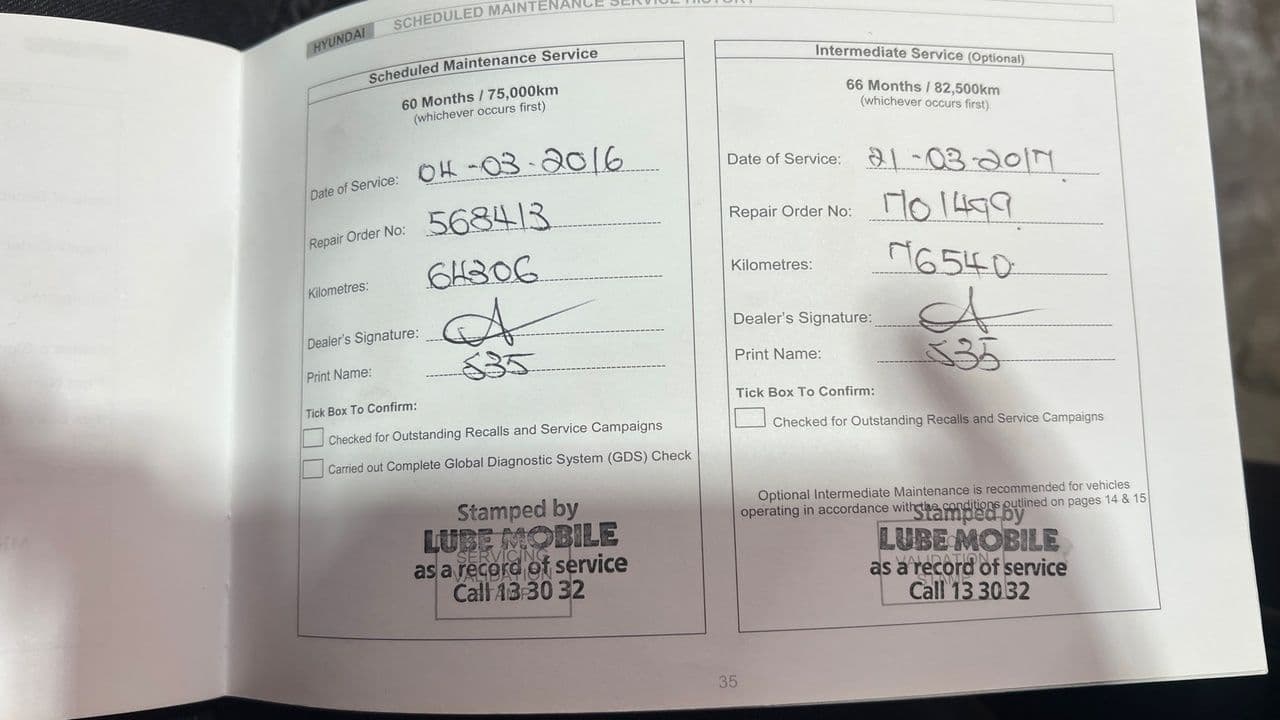 HYUNDAI SCHEDULED MAINTENANCE SERVICE HISTORY
Scheduled Maintenance Service
60 Months / 75,000km
(whichever occurs first)
Date of Service: 04-03-2016
Repair Order No: 568413
Kilometres: 64306
Dealer's Signature:
Print Name: 535
Tick Box To Confirm:
Checked for Outstanding Recalls and Service Campaigns
Carried out Complete Global Diagnostic System (GDS) Check
Stamped by
LUBE MOBILE
SERVICING
as a record of service
VALIDATION
Call 13 30 32
Intermediate Service (Optional)
66 Months / 82,500km
(whichever occurs first)
Date of Service: 21-03-2017
Repair Order No: 701499
Kilometres: 76540
Dealer's Signature:
Print Name: 535
Tick Box To Confirm:
Checked for Outstanding Recalls and Service Campaigns
Optional Intermediate Maintenance is recommended for vehicles
operating in accordance with the conditions outlined on pages 14 & 15
Stamped by
LUBE MOBILE
VALIDATION
as a record of service
Call 13 30 32
35